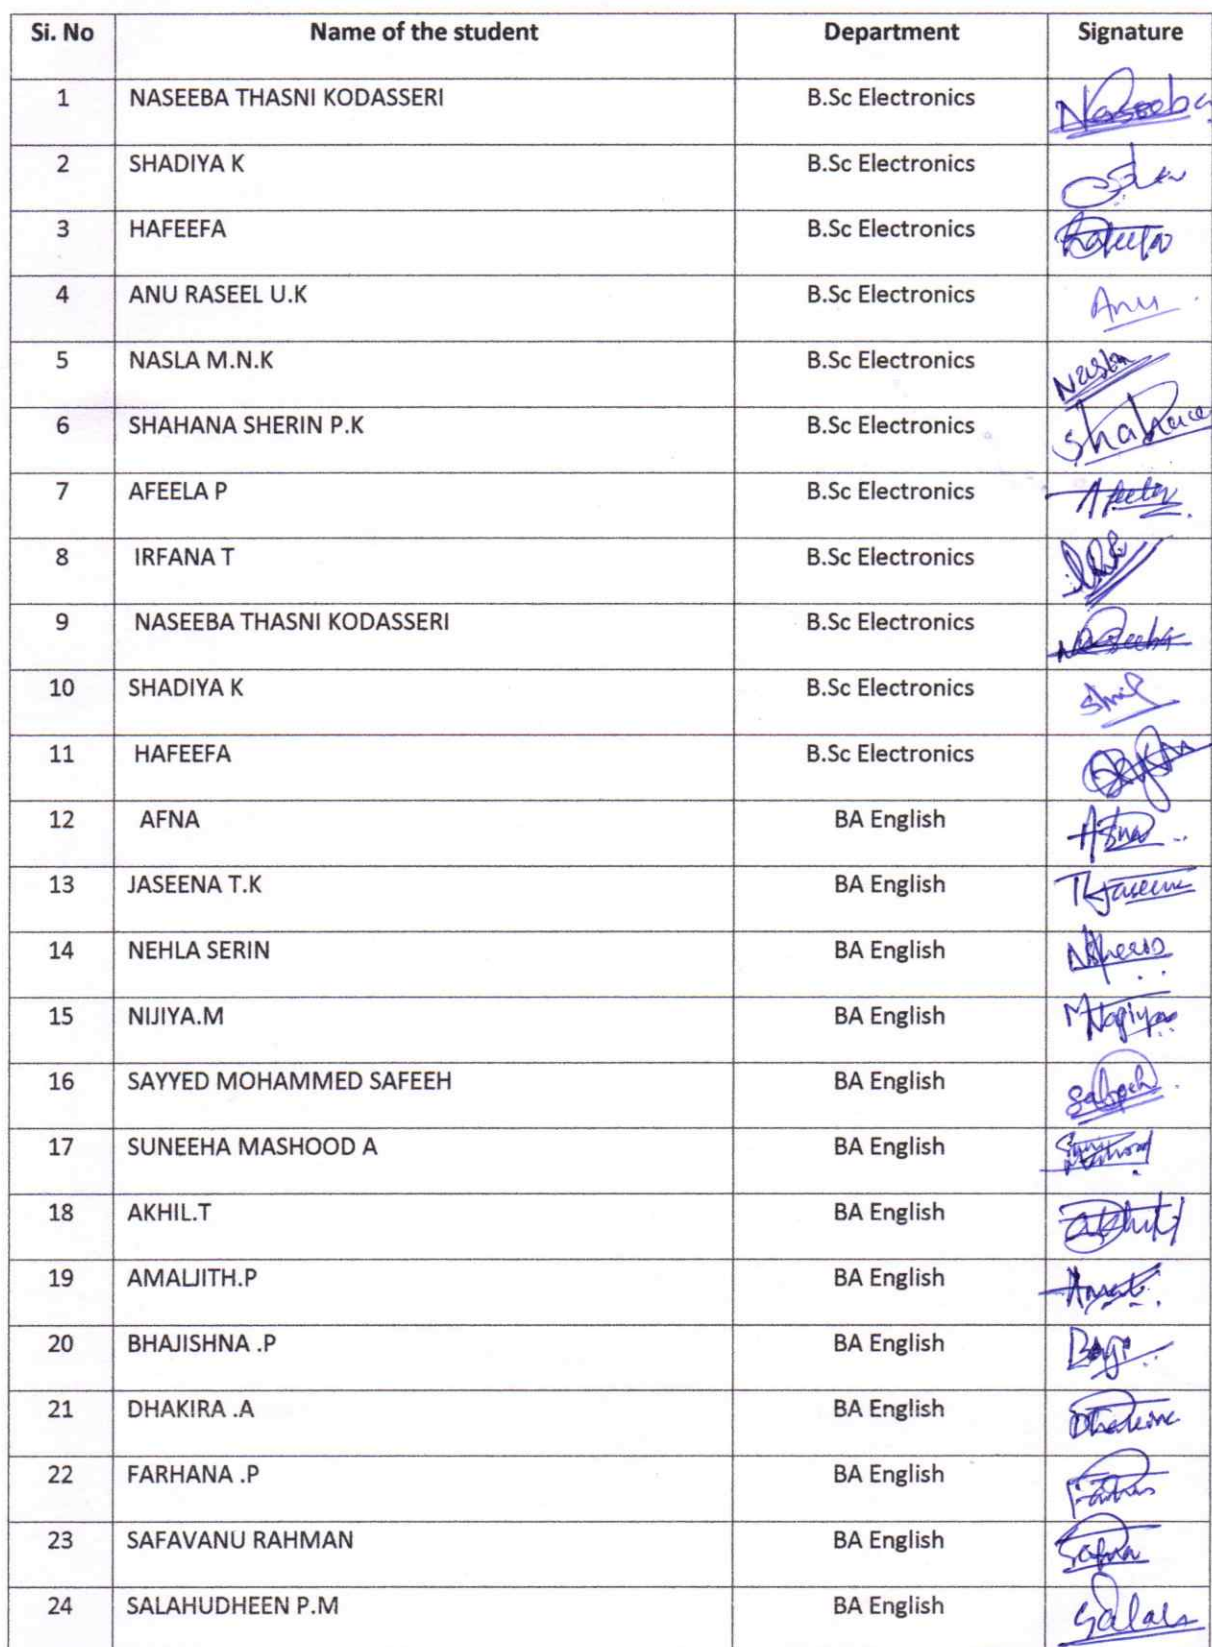 Si. No Name of the student Department Signature
1 NASEEBA THASNI KODASSERI B.Sc Electronics Naseeba
2 SHADIYA K B.Sc Electronics
3 HAFEEFA B.Sc Electronics
4 ANU RASEEL U.K B.Sc Electronics Anu
5 NASLA M.N.K B.Sc Electronics Nasla
6 SHAHANA SHERIN P.K B.Sc Electronics
7 AFEELA P B.Sc Electronics
8 IRFANA T B.Sc Electronics
9 NASEEBA THASNI KODASSERI B.Sc Electronics Naseeba
10 SHADIYA K B.Sc Electronics
11 HAFEEFA B.Sc Electronics
12 AFNA BA English
13 JASEENA T.K BA English
14 NEHLA SERIN BA English
15 NIJIYA.M BA English
16 SAYYED MOHAMMED SAFEEH BA English
17 SUNEEHA MASHOOD A BA English
18 AKHIL.T BA English
19 AMALJITH.P BA English
20 BHAJISHNA .P BA English
21 DHAKIRA .A BA English
22 FARHANA .P BA English
23 SAFAVANU RAHMAN BA English
24 SALAHUDHEEN P.M BA English